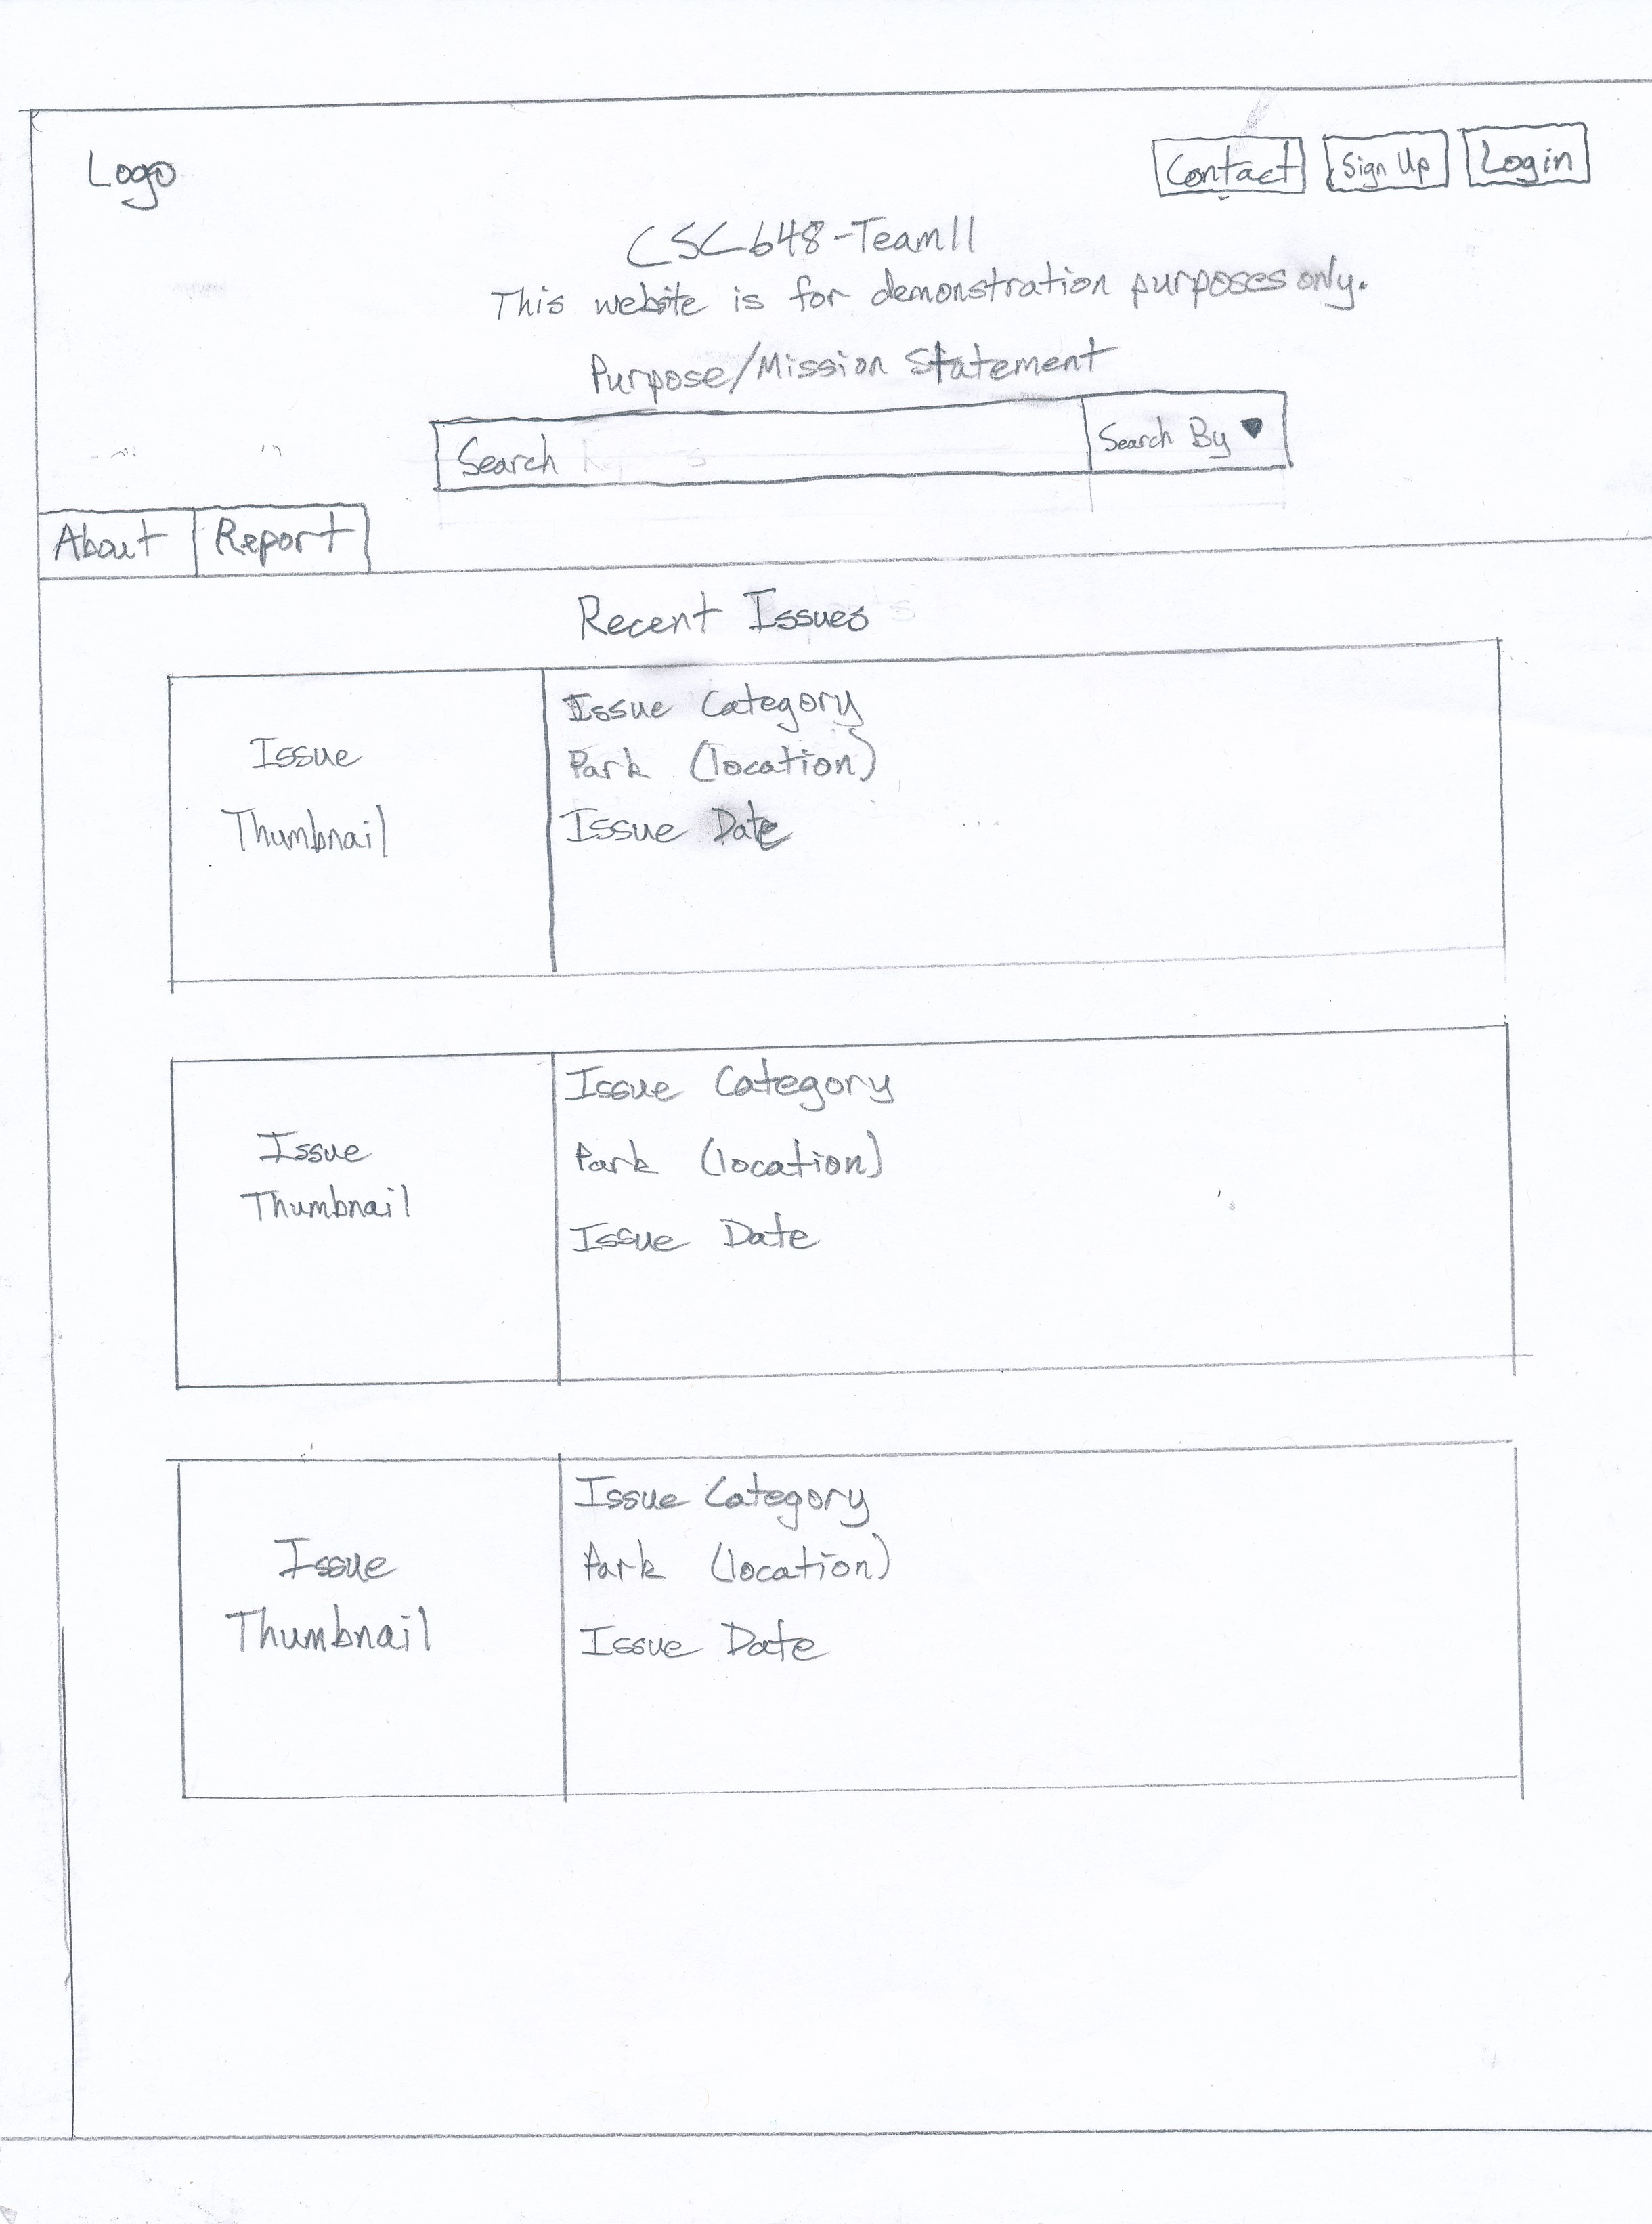 Logo
Contact Sign Up Login
CSC648-Team11
This website is for demonstration purposes only.
Purpose/Mission Statement
Search Search By
About Report
Recent Issues
Issue
Thumbnail
Issue Category
Park (location)
Issue Date
Issue
Thumbnail
Issue Category
Park (location)
Issue Date
Issue
Thumbnail
Issue Category
Park (location)
Issue Date